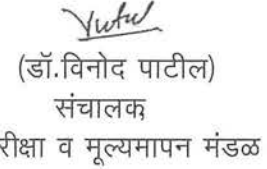 (डॉ.विनोद पाटील)
संचालक
रीक्षा व मूल्यमापन मंडळ